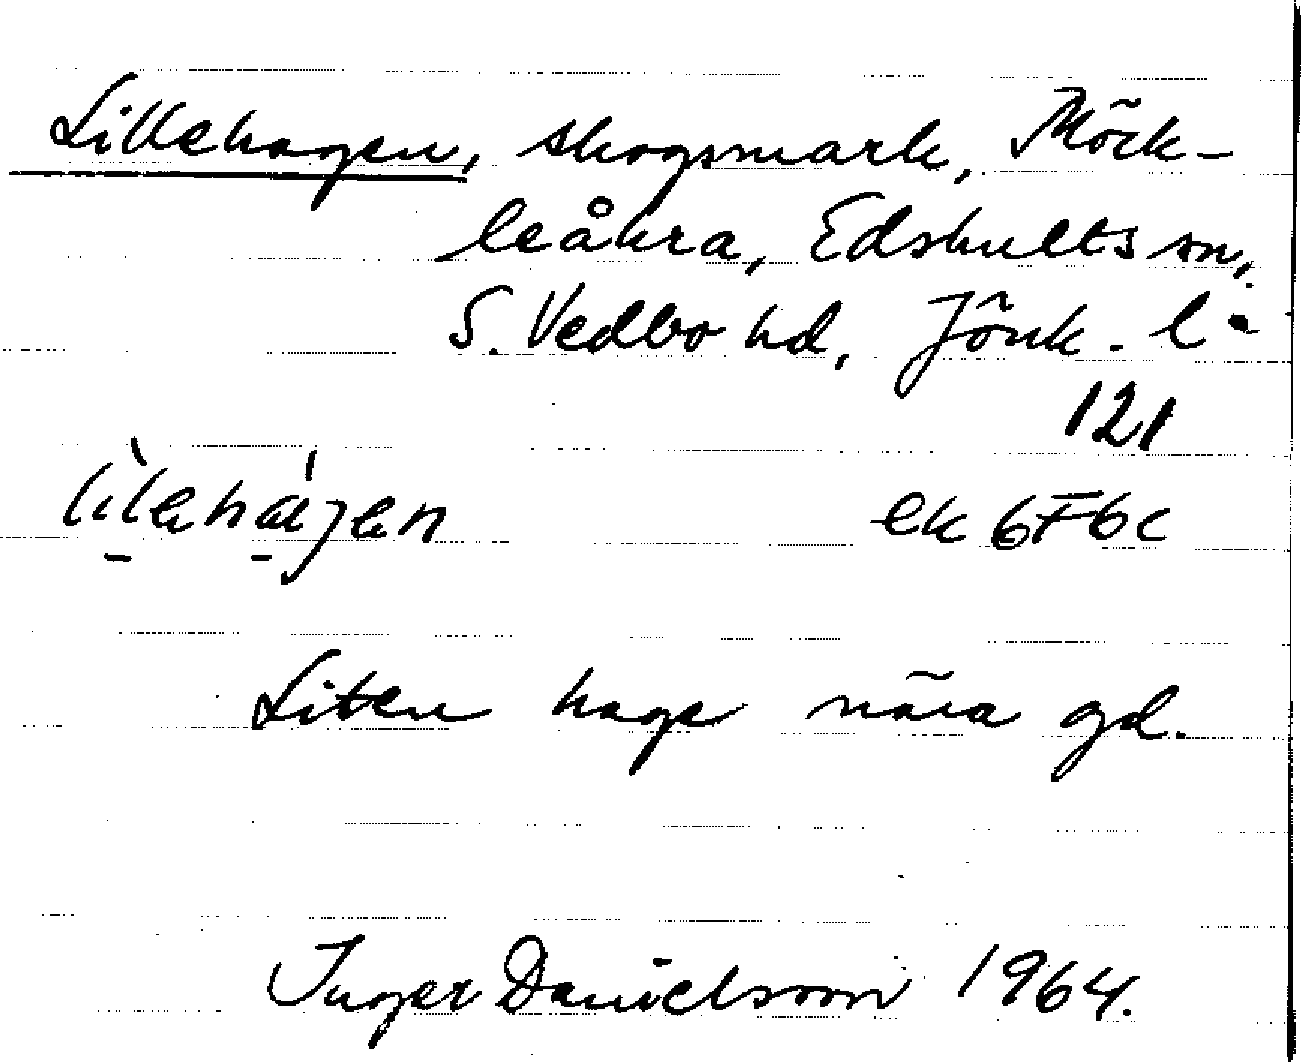 Lillehagen, skogsmark, Möck-
leåkra, Edshults sn,
S. Vedbo hd, Jönk. l.
121
ek 6F6c
Liten hage nära gd.
Inger Danielsson 1964.